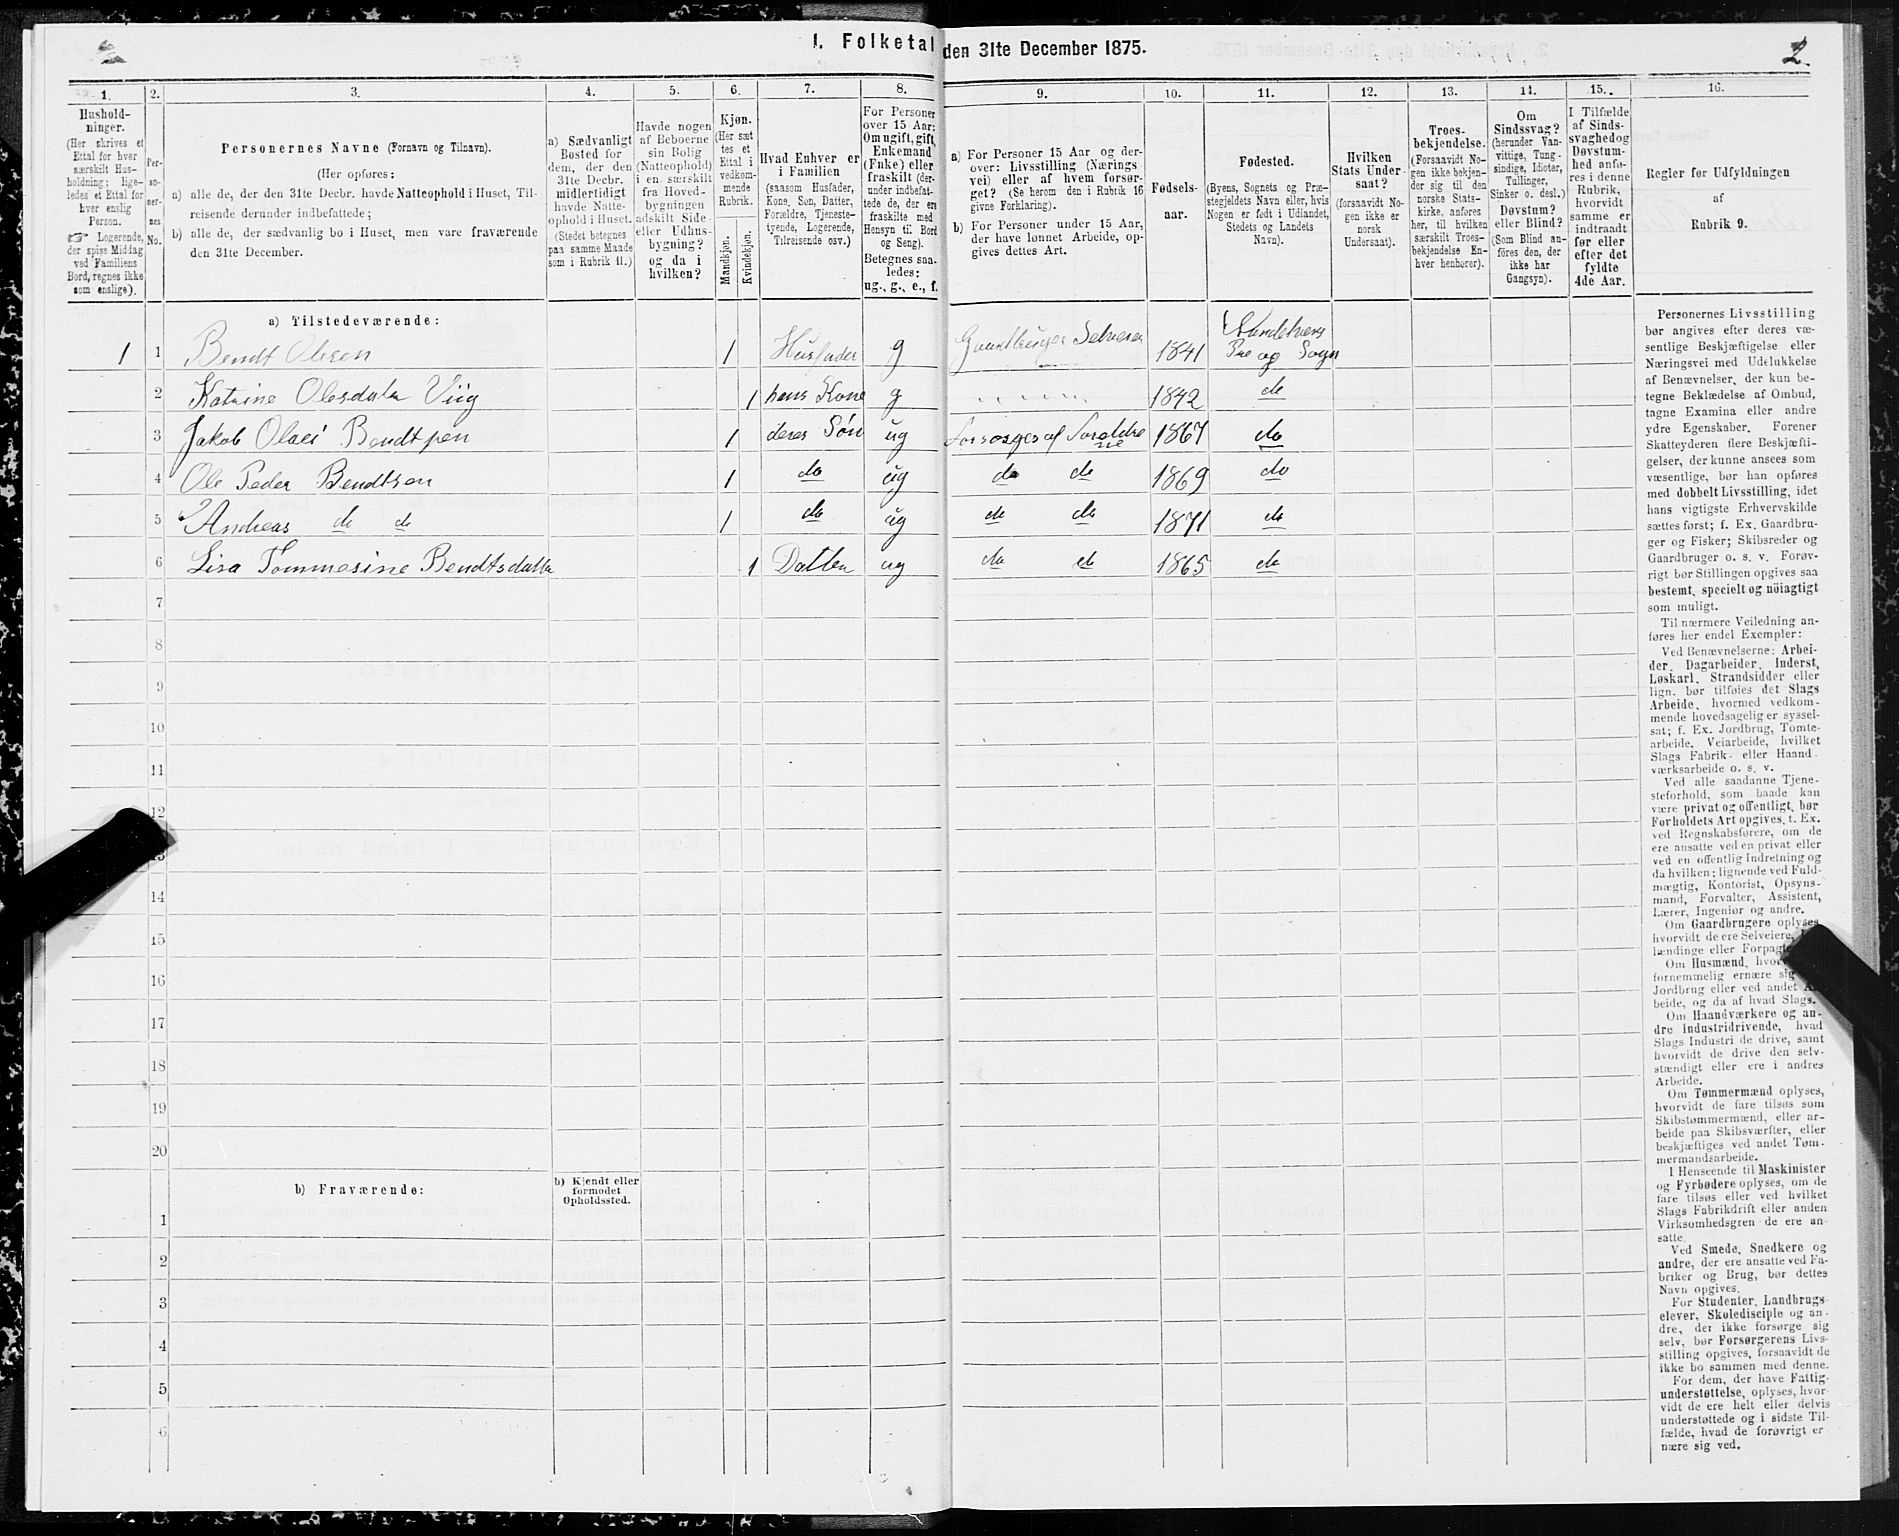 1. Folketal den 31te December 1875.
2.
1.
2.
3.
4.
5.
6.
7.
8.
9.
10.
11.
12.
13.
14.
15.
16.
Hushold-
ninger.
(Her skrives et
Ettal for hver
særskilt Hus-
holdning; lige-
ledes et Ettal for
hver enslig
Person.
☞ Logerende,
der spise Middag
ved Familiens
Bord, regnes ikke
som enslige).
Per-
so-
ner-
nes
No.
Personernes Navne (Fornavn og Tilnavn).
(Her opføres:
a) alle de, der den 31te Decbr. havde Natteophold i Huset, Til-
reisende derunder indbefattede;
b) alle de, der sædvanlig bo i Huset, men vare fraværende
den 31te December.
a) Sædvanligt
Bosted for
dem, der den
31te Decbr.
midlertidigt
havde Natte-
ophold i Huset.
(Stedet betegnes
paa samme Maade
som i Rubrik 11.)
Havde nogen
af Beboerne
sin Bolig
(Natteophold)
i en særskilt
fra Hoved-
bygningen
adskilt Side-
eller Udhus-
bygning?
og da i
hvilken?
Kjøn.
(Her sæt-
tes et
Ettal i
vedkom-
mende
Rubrik.
Mandkjøn.
Kvindekjøn.
Hvad Enhver er
i Familien
(saasom Husfader,
Kone, Søn, Datter,
Forældre, Tjeneste-
tyende, Logerende,
Tilreisende osv.)
For Personer
over 15 Aar:
Om ugift, gift,
Enkemand
(Enke) eller
fraskilt (der-
under indbefat-
tede de, der ere
fraskilte med
Hensyn til Bord
og Seng).
Betegnes saa-
ledes:
ug., g., e., f.
a) For Personer 15 Aar og der-
over: Livsstilling (Nærings-
vei) eller af hvem forsør-
get? (Se herom den i Rubrik 16
givne Forklaring).
b) For Personer under 15 Aar,
der have lønnet Arbeide, op-
gives dettes Art.
Fødsels-
aar.
Fødested.
(Byens, Sognets og Præ-
stegjeldets Navn eller, hvis
Nogen er født i Udlandet,
Stedets og Landets
Navn).
Hvilken
Stats Under-
saat?
(forsaavidt No-
gen ikke er
norsk
Undersaat).
Troes-
bekjendelse.
(Forsaavidt No-
gen ikke bekjen-
der sig til den
norske Stats-
kirke, anføres
her, til hvilken
særskilt Troes-
bekjendelse En-
hver henhører).
Om
Sindssvag?
(herunder Van-
vittige, Tung-
sindige, Idioter,
Tullinger,
Sinker o. desl.)
Døvstum?
eller Blind?
(Som Blind an-
føres den, der
ikke har
Gangsyn).
I Tilfælde
af Sinds-
svaghed og
Døvstum-
hed anfø-
res i denne
Rubrik,
hvorvidt
samme er
indtraadt
før eller
efter det
fyldte
4de Aar.
Regler for Udfyldningen
af
Rubrik 9.
a) Tilstedeværende:
1 1 Bendt Olesen 1 Husfader g Gaardbruger Selveier 1841 Pre og Sogn
2 Katrine Olesdater Viig 1 hans Kone g 1842 do
3 Jakob Olaei Bendtsen 1 deres Søn ug Forsørges af Foreldrene 1867 do
4 Ole Peder Bendtsen 1 do ug do do 1869 do
5 Andreas do do 1 do ug do do 1871 do
6 Lisa Tommesine Bendtsdatter 1 Datter ug do do 1865 do
7
8
9
10
11
12
13
14
15
16
17
18
19
20
b) Fraværende:
b) Kjendt eller
formodet
Opholdssted.
1
2
3
4
5
6
Personernes Livsstilling
bør angives efter deres væ-
sentlige Beskjæftigelse eller
Næringsvei med Udelukkelse
af Benævnelser, der kun be-
tegne Beklædelse af Ombud,
tagne Examina eller andre
ydre Egenskaber. Forener
Skatteyderen flere Beskjæfti-
gelser, der kunne ansees som
væsentlige, bør han opføres
med dobbelt Livsstilling, idet
hans vigtigste Erhvervskilde
sættes først; f. Ex. Gaardbru-
ger og Fisker; Skibsreder og
Gaardbruger o. s. v. Forøv-
rigt bør Stillingen opgives saa
bestemt, specielt og nöiagtigt
som muligt.
Til nærmere Veiledning an-
føres her endel Exempler:
Ved Benævnelserne: Arbei-
der, Dagarbeider, Inderst,
Løskarl, Strandsidder eller
lign. bør tilføies det Slags
Arbeide, hvormed vedkom-
mende hovedsagelig er syssel-
sat; f. Ex. Jordbrug, Tomte-
arbeide, Veiarbeide, hvilket
Slags Fabrik- eller Haand-
værksarbeide o. s. v.
Ved alle saadanne Tjene-
steforhold, som baade kan
være privat og offentligt, bør
Forholdets Art opgives, t. Ex.
ved Regnskabsførere, om de
ere ansatte ved en privat eller
ved en offentlig Indretning og
da hvilken; lignende ved Fuld-
mægtig, Kontorist, Opsyns-
mand, Forvalter, Assistent,
Lærer, Ingeniør og andre.
Om Gaardbrugere oplyses
hvorvidt de ere Selveiere,
lændinge eller
Om Husmænd,
fornemmelig ernære sig
Jordbrug eller ved andet
beide, og da af hvad Slags.
Om Haandværkere og an-
dre Industridrivende, hvad
Slags Industri de drive, samt
hvorvidt de drive den selv-
stændigt eller ere i andres
Arbeide.
Om Tømmermænd oplyses,
hvorvidt de fare tilsøs som
Skibstømmermænd, eller ar-
beide paa Skibsværfter, eller
beskjæftiges ved andet Tøm-
mermandsarbeide.
I Henseende til Maskinister
og Fyrbødere oplyses, om de
fare tilsøs eller ved hvilket
Slags Fabrikdrift eller anden
Virksomhedsgren de ere an-
satte.
Ved Smede, Snedkere og
andre, der ere ansatte ved Fa-
briker og Brug, bør dettes
Navn opgives.
For Studenter, Landbrugs-
elever, Skoledisciple og an-
dre, der ikke forsørge sig
selv, bør Forsørgerens Livs-
stilling opgives, forsaavidt de
ikke bo sammen med denne.
For dem, der have Fattig-
understøttelse, oplyses, hvor-
vidt de ere helt eller delvis
understøttede og i sidste Til-
fælde, hvad de forøvrigt er-
nære sig ved.